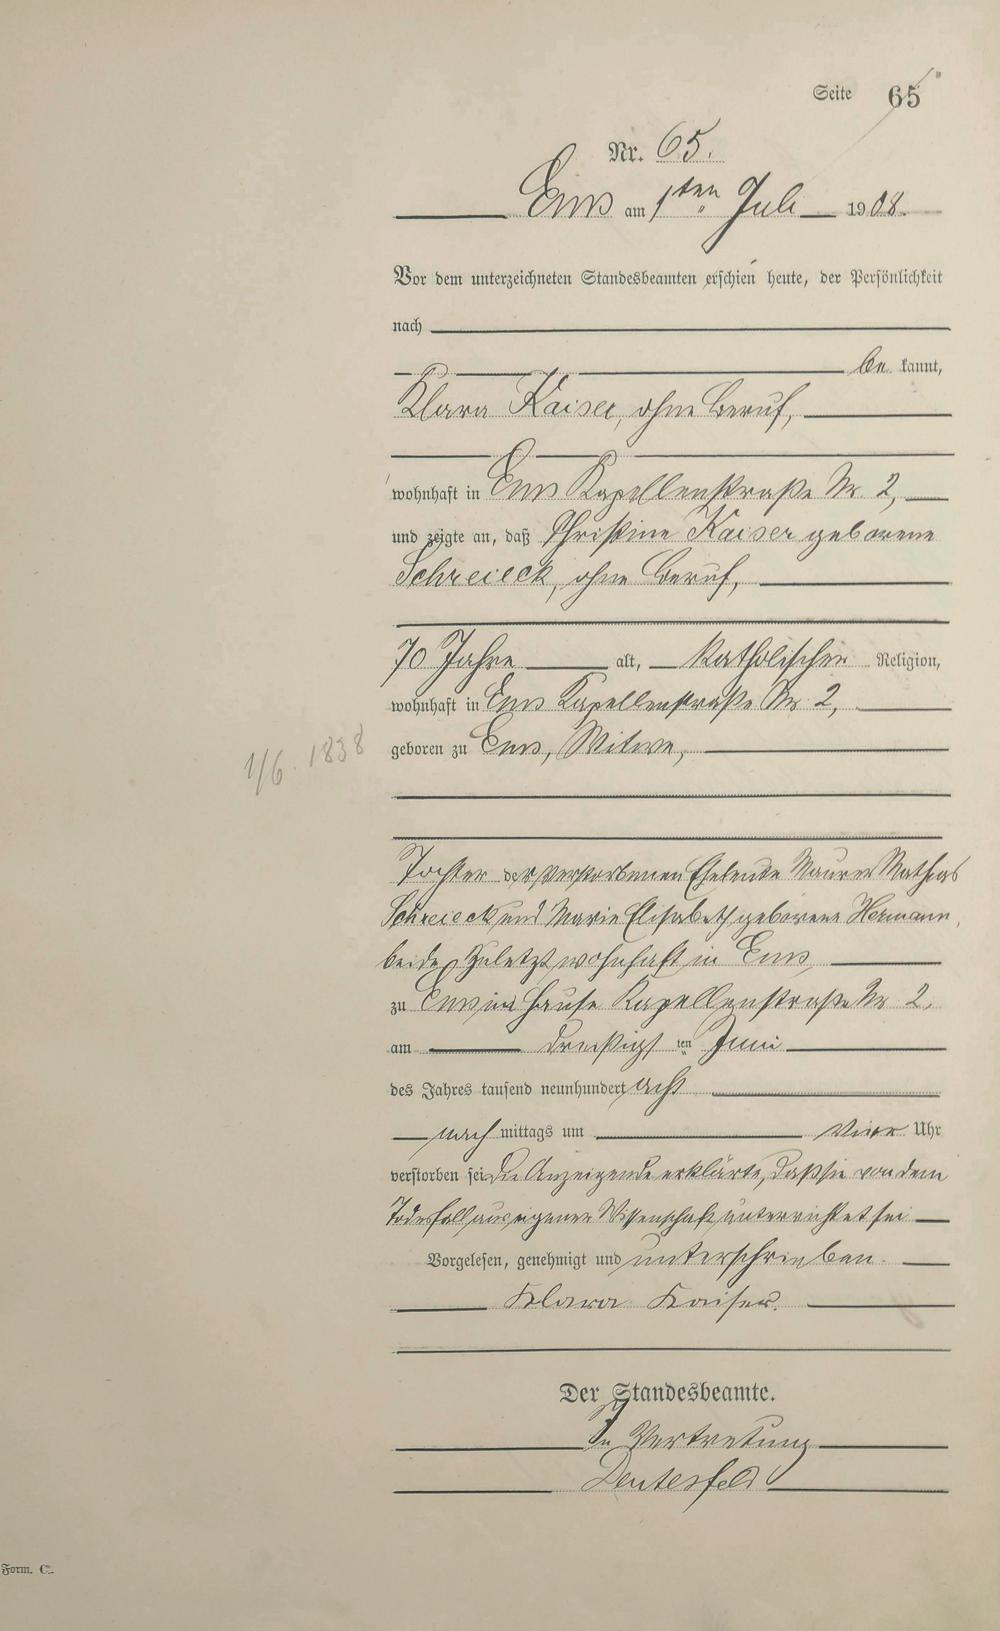 Seite 65
Nr. 65.
Ems am 1ten Juli 1908.
Vor dem unterzeichneten Standesbeamten erschien heute, der Persönlichkeit
nach
be kannt,
Klara Kaiser, ohne Beruf,
wohnhaft in Ems Kapellenstraße Nr. 2,
und zeigte an, daß Christine Kaiser geborene
Schreieck, ohne Beruf,
70 Jahre alt, katholischen Religion,
wohnhaft in Ems Kapellenstraße Nr. 2,
geboren zu Ems, Witwe,
1/6. 1838
Tochter der verstorbenen Eheleute Maurer Mathias
Schreieck und Marie Elisabeth geborene Hermann,
beide zuletzt wohnhaft in Ems
zu Ems im Hause Kapellenstraße Nr. 2,
am dreißigsten Juni
des Jahres tausend neunhundert acht
nach mittags um vier Uhr
verstorben sei. Die Anzeigende erklärte, daß sie von dem
Todesfall aus eigener Wissenschaft unterrichtet sei
Vorgelesen, genehmigt und unterschrieben.
Klara Kaiser.
Der Standesbeamte.
In Vertretung
Form. C.